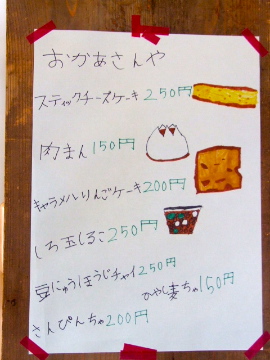 おかあさんや
スティックチーズケーキ 250円
肉まん 150円
キャラメルりんごケーキ 200円
しら玉しるこ 250円
豆にゅうほうじチャイ 250円
ひやし麦ちゃ 150円
さんぴんちゃ 200円